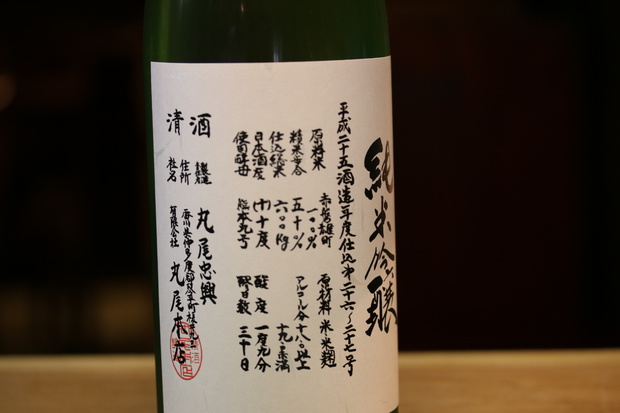 純米吟醸
平成二十五酒造年度仕込第二十六～二十七号
原料米 赤磐雄町 一〇〇% 原材料 米・米麹
精米歩合 五十% アルコール分 十八〇以上
仕込総米 六〇〇kg 十九〇未満
日本酒度 (十)十度 酸度 一度九分
使用酵母 熊本九号 醪日数 三十日
清酒
製造 丸尾忠興
住所
社名 有限会社 丸尾本店